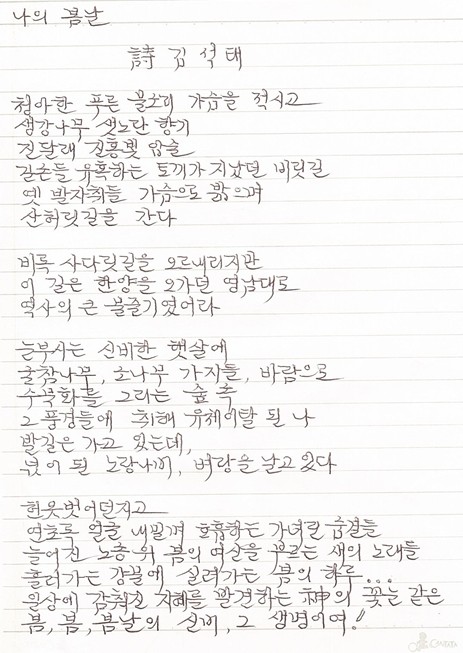 나의 봄날
詩 김석태
청아한 푸른 물소리 가슴을 적시고
생강나무 샛노란 향기
진달래 진홍빛 입술
길손들 유혹하는 토끼가 지났던 벼릿길
옛 발자취들 가슴으로 밟으며
산허릿길을 간다
비록 사다릿길을 오르내리지만
이 길은 한양을 오가던 영남대로
역사의 큰 물줄기였어라
눈부시는 신비한 햇살에
굴참나무, 소나무 가지들, 바람으로
수묵화를 그리는 숲 속
그 풍경들에 취해 유체이탈 된 나
발길은 가고 있는데,
넋이 된 노랑나비, 벼랑을 날고 있다
헌옷벗어던지고
연초록 얼굴 내밀며 호흡하는 가녀린 숨결들
늘어진 노송 위 봄의 여신을 부르는 새의 노래들
흘러가는 강물에 실려가는 봄의 하루...
일상에 감춰진 지혜를 발견하는 神의 꽃눈 같은
봄, 봄, 봄날의 신비, 그 생명이여!